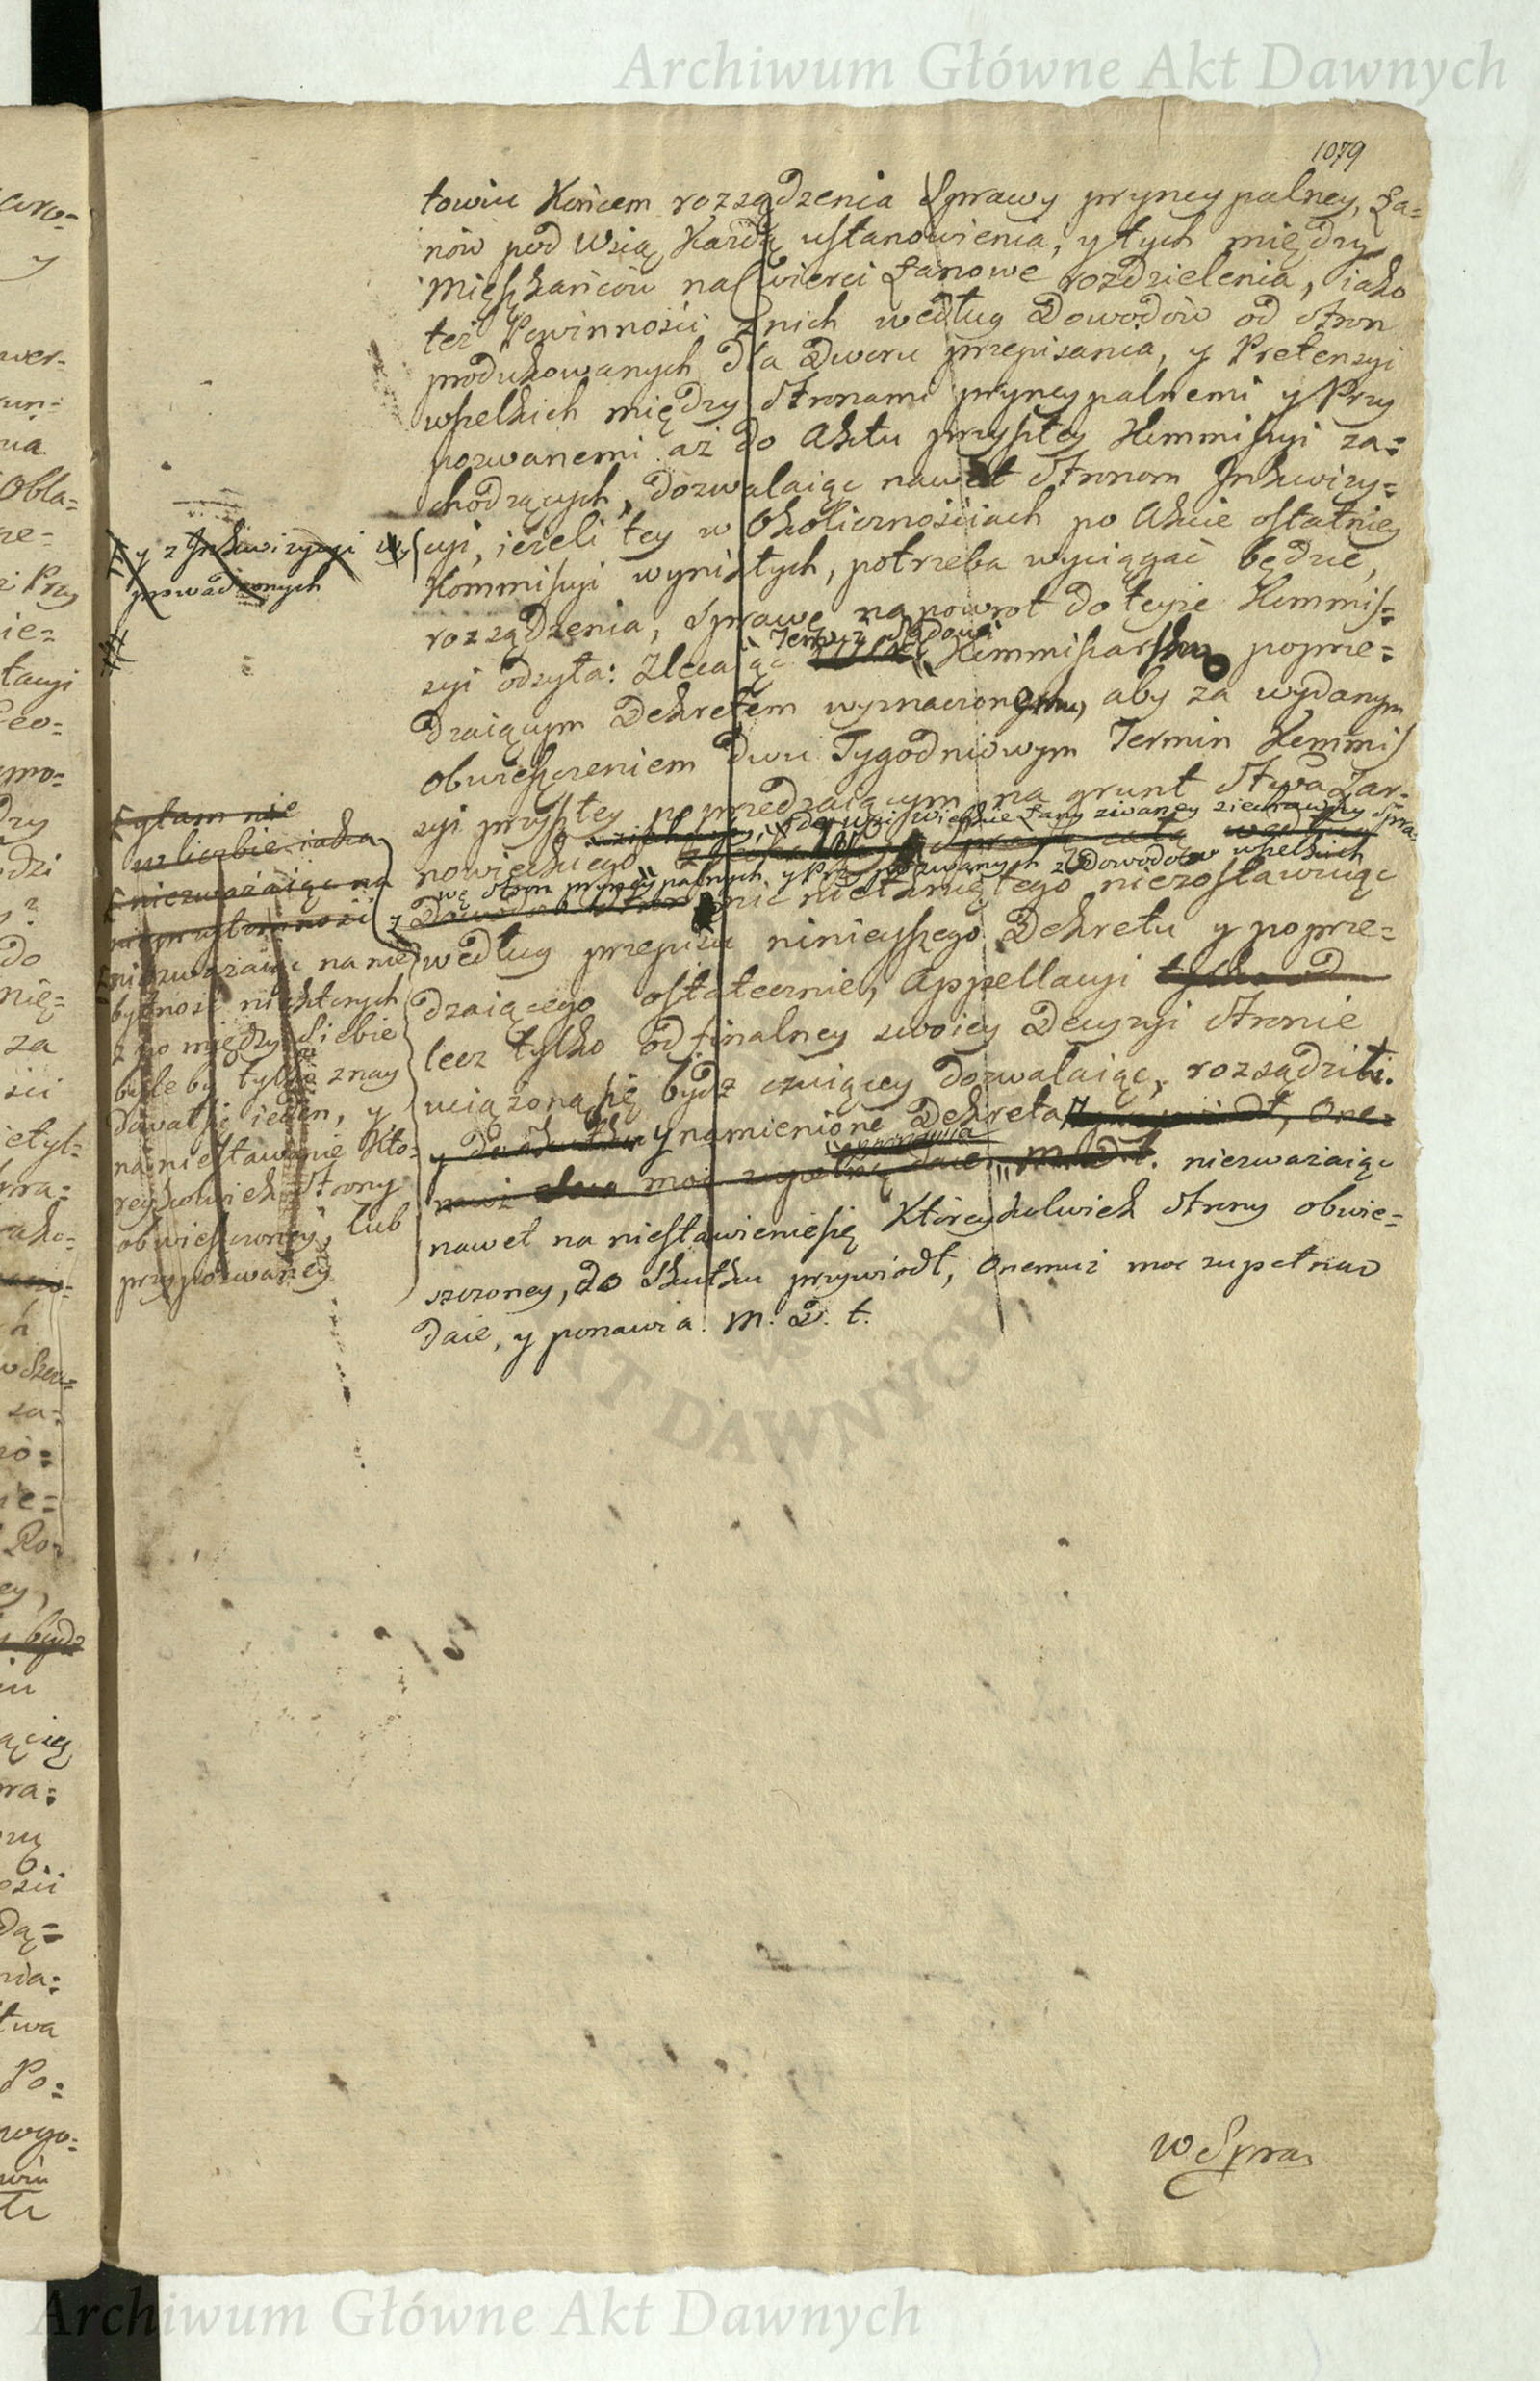 Archiwum Główne Akt Dawnych
1079
towiu Końcem rozsądzenia Sprawy pryncypalney, Ła=
nów pod Wsią Każdą ustanowienia, y tych między
Mięszkańców na Cwierci Łanowe rozdzielenia, iako
też Powinności z nich według Dowodów od Stron
produkowanych dla Dworu przepisania, y Pretensyi
wszelkich między Stronami pryncypalnemi y Przy
pozwanemi aż do Aktu przyszłey Kommissyi za=
chodzących, dozwalaiąc nawet Stronom Inkwizy=
cyi, ieżeli tey w Okolicznościach po Akcie ostatniey
Kommissyi wynikłych, potrzeba wyciągać będzie,
rozsądzenia, Sprawę na powrot do teyże Kommis=
syi odsyła: Zlecaiąc Kommisarsku poprze=
dzaiącym Dekretem wyznaczonemu, aby za wydanym
Obwieszczeniem dwu Tygodniowym Termin Kommis
syi przyszłey poprzedzaiącym na grunt Stwa Żar-
nowieckiego
Łany zwaney
wę Stron pryncypalnych, y Przypozwanych z Dowodow wszelkich
nic nietkniętego niezostawuiąc
według przepisu ninieyszego Dekretu y poprze=
dzaiącego ostatecznie, Appellacyi tylko d
lecz tylko od finalney swoiey Decyzyi Stronie
uciążoną się bydz czuiącey dozwalaiąc, rozsądzili.
y do skutku y namienione Dekreta One=
muż moc zupełną daie M. D. t. nieważaiąc
nawet na niestawienie się Któreykolwiek Strony obwie=
szczoney, do Skutku przywiodł, Onemuż moc zupełnaw
daie, y ponawia. M. D. t.
y z Inkwizycyi wy
prowadzonych
#
y tam nie
w liczbie iaka
nieważaiąc na
nieprzytomność
nieuważaiąc na nie
bytność niektorych
z po między Siebie
byle by tylko znay
dował się ieden, y
na niestawanie Kto=
reykolwiek Strony
obwieszczoney, lub
przypozwaney
AKT DAWNYCH
w Spra
Archiwum Główne Akt Dawnych